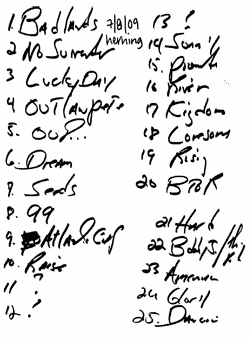 1. Badlands
7/8/09
herning
2 No Surrender
3 Lucky Day
4 OUTlaw Pete
5. OUT...
6. Dream
7. Seeds
8. 99
9. Atlantic City
10. Raise
11 ?
12. ?
13 ?
14 Sunny
15. Promised
16 River
17 Kingdom
18 Lonesome
19 Rising
20 BTR
21 Hard
22 Bobby J/thu
23 American
24 Glory
25. Dancin